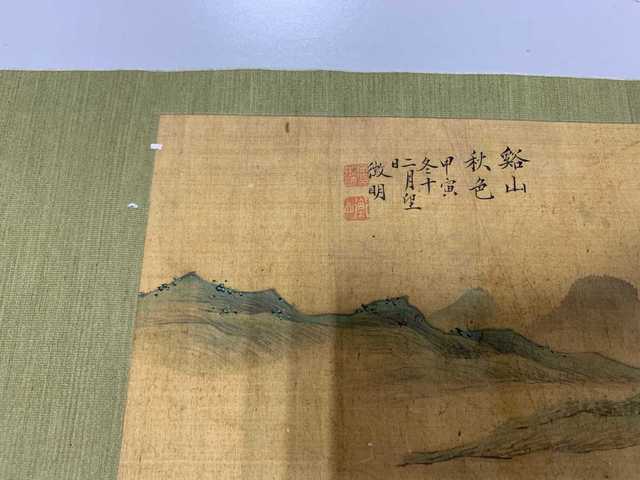 谿山
秋色
甲寅
冬十
二月望
日
徵明